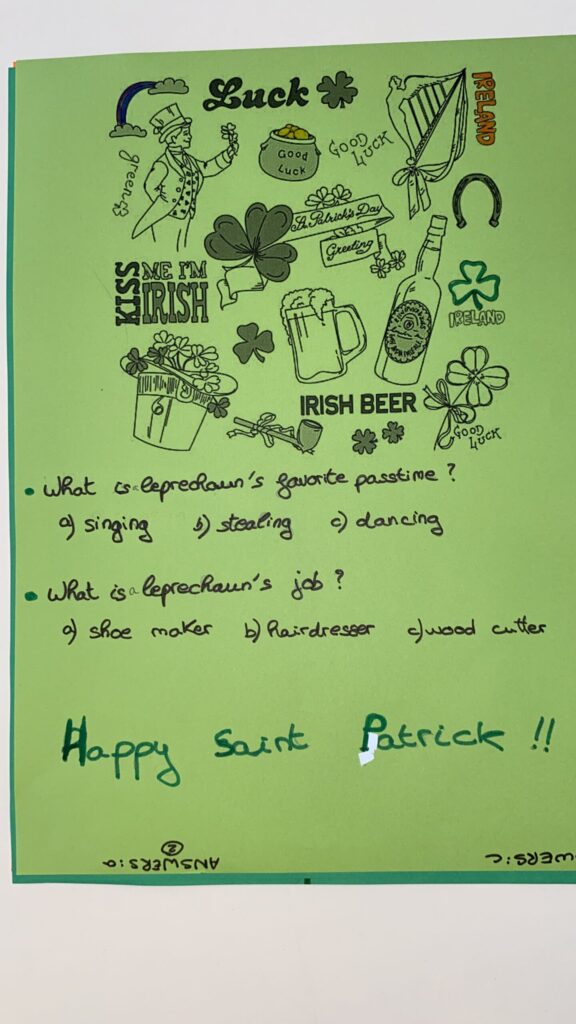 Luck
IRELAND
Good
Luck
GOOD
LUCK
green
St. Patrick's Day
Greeting
KISS
ME I'M
IRISH
IRELAND
IRISH BEER
GOOD
LUCK
• What is a leprechaun's favorite passtime ?
a) singing b) stealing c) dancing
• What is a leprechaun's job ?
a) shoe maker b) hairdresser c) wood cutter
Happy Saint Patrick !!
② ANSWERS: a
WERS: C